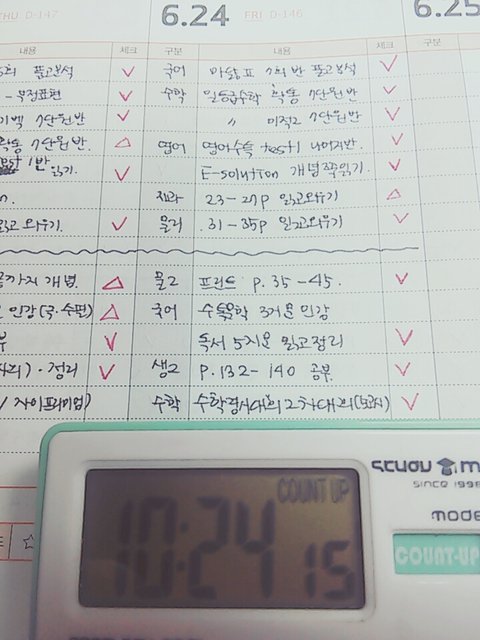 THU D-147 6.24 FRI D-146 6.25
내용 체크 구분 내용 체크 구분
풀고분석 국어 마닳 1회 반 풀고분석
- 부정표현 수학 일등급수학 확통 1단원반
1단원반 〃 미적2 1단원반
확통 1단원반. 영어 영어수특 test1 나머지반.
1반 읽기. E-solution 개념쭉읽기.
23-27p 읽고외우기
읽고 외우기. 물리 31-35p 읽고외우기
까지 개념 물2 프린트 p.35-45.
인강(국.수편) 국어 수능문학 3거운 인강
독서 5지문 읽고정리
·정리 생2 p.132-140 공부.
자이프리미엄) 수학 수학경시대회 2차대비
COUNT UP
10:24 15
STUDY M
SINCE 1998
MODE
COUNT-UP